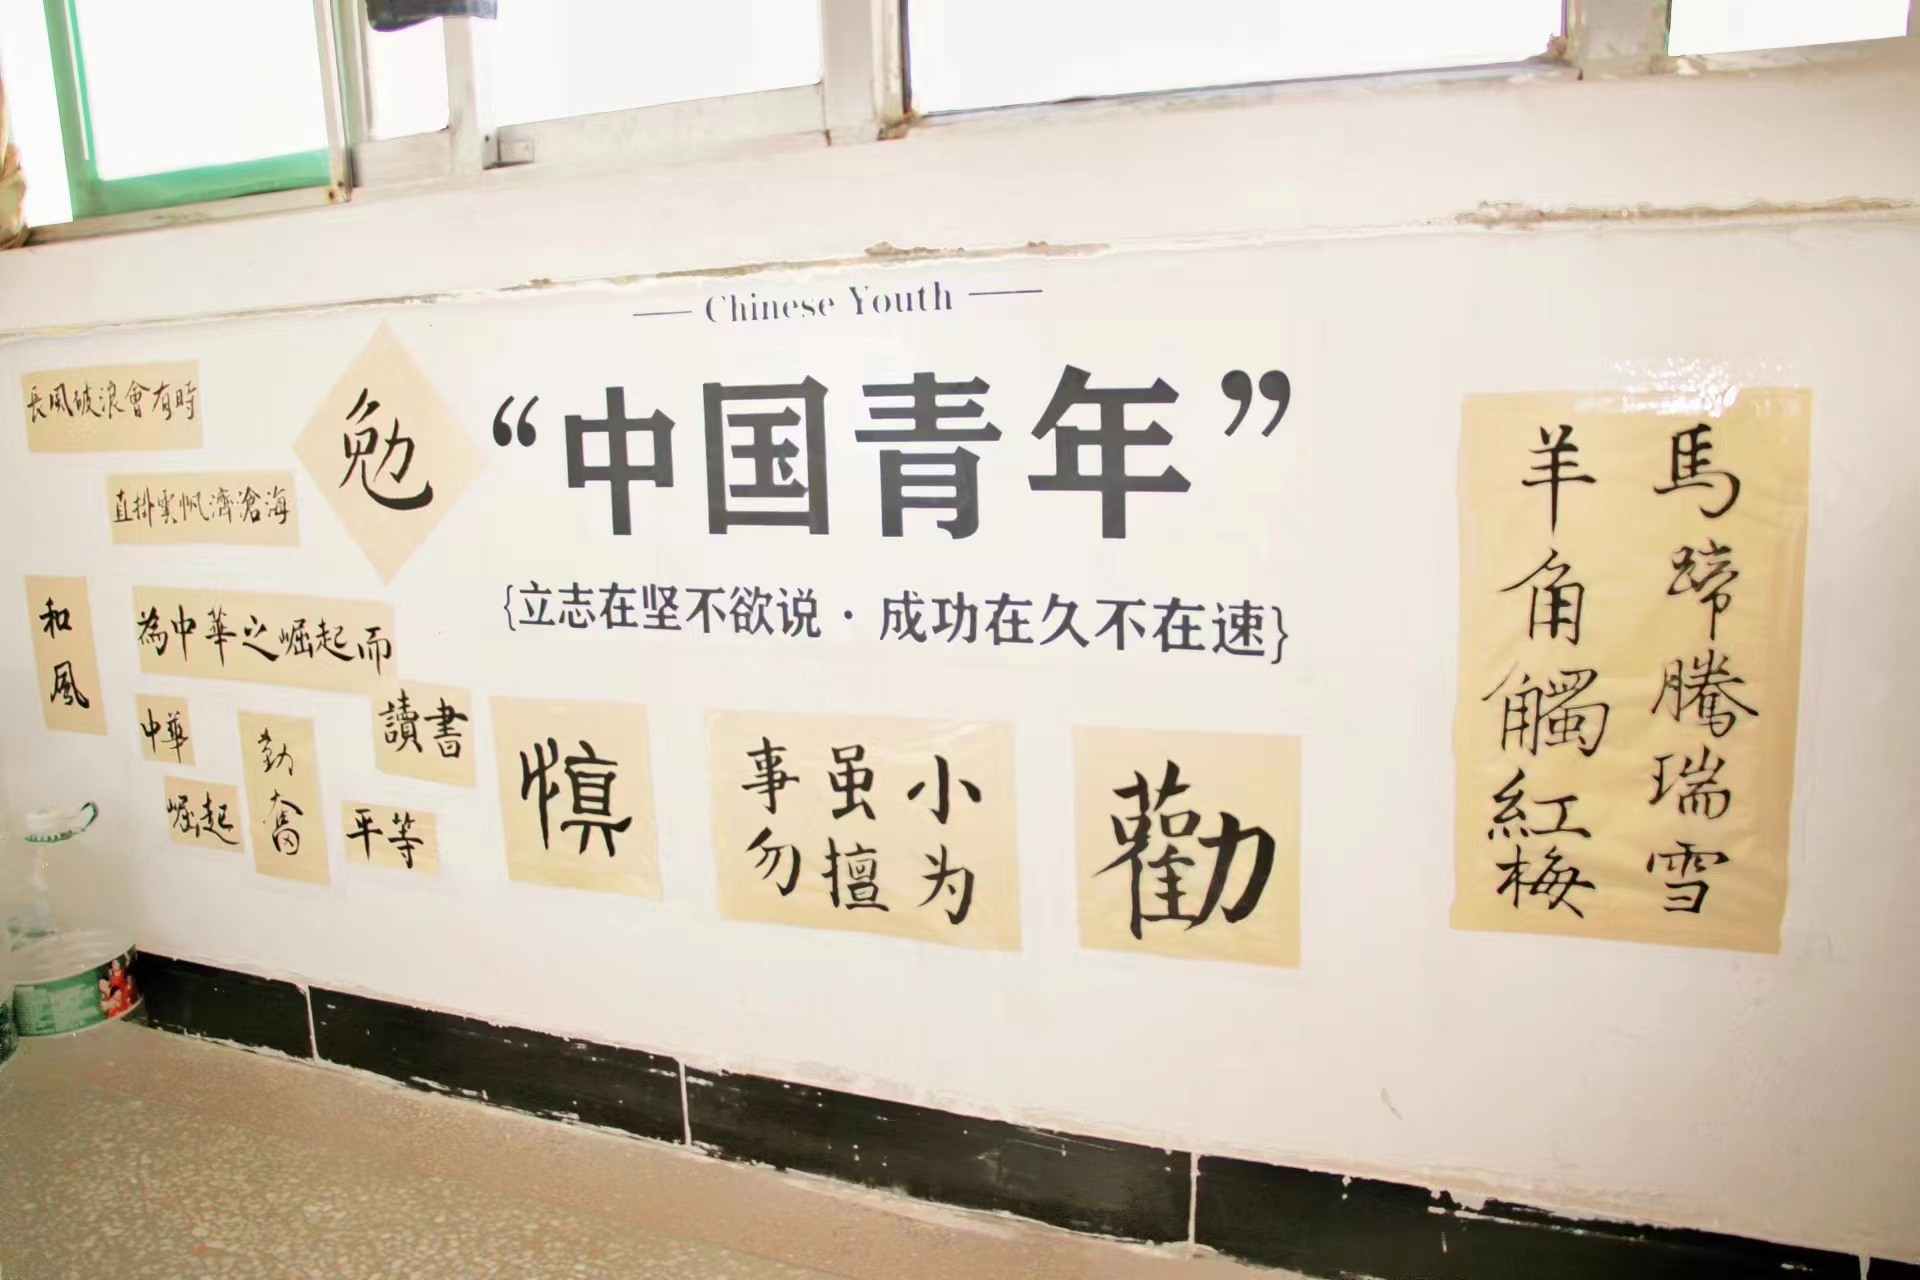 Chinese Youth
“中国青年”
{立志在坚不欲说·成功在久不在速}
長風破浪會有時
直掛雲帆濟滄海
勉
和風
為中華之崛起而
讀書
中華
崛起
勤奮
平等
慎
小为
虽擅
事勿
勸
馬蹄騰瑞雪
羊角觸紅梅